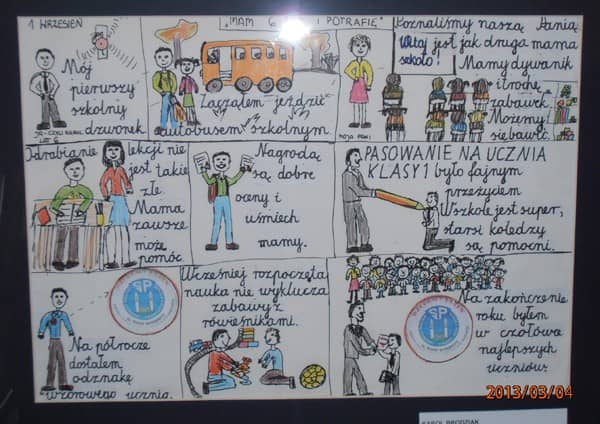 1 WRZESIEŃ
Mój
pierwszy
szkolny
dzwonek
„MAM 6 I POTRAFIĘ"
Zacząłem jeździć
autobusem szkolnym
Poznaliśmy naszą Panią
Witaj
szkoło!
jest jak druga mama
Mamy dywanik
i trochę
zabawek.
Możemy
się bawić.
MOJA PANI
Odrabianie
lekcji nie
jest takie
złe.
Mama
zawsze
może
pomóc.
Nagrodą
są dobre
oceny i
uśmiech
mamy.
PASOWANIE NA UCZNIA
KLASY 1 było fajnym
przeżyciem
W szkole jest super,
starsi koledzy
są pomocni.
Na półrocze
dostałem
odznakę
wzorowego ucznia.
SP
Wcześniej rozpoczęta
nauka nie wyklucza
zabawy z
rówieśnikami.
Na zakończenie
roku byłem
w czołówce
najlepszych
uczniów.
SP
2013/03/04
KAROL BRODZIAK